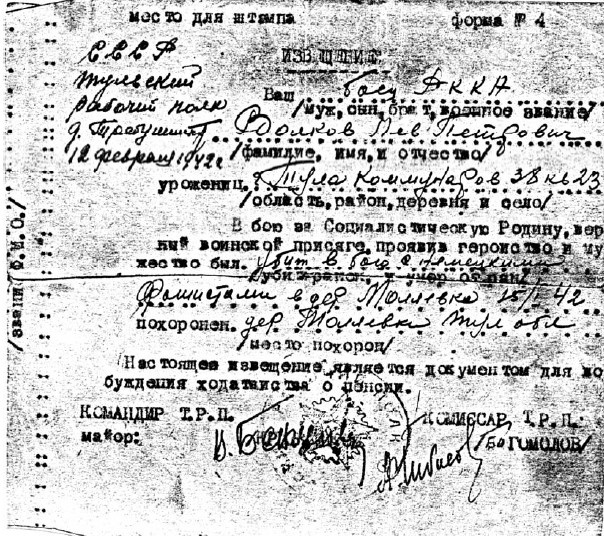 место для штампа форма № 4
ИЗВЕЩЕНИЕ
СССР
Тульский
рабочий полк
12 февраля 1942 г
Ваш боец РККА
/муж, сын, брат, военное звание/
Волков Лев Петрович
/фамилие, имя, и отчество/
уроженец г. Тула Коммунаров 38 кв 23
/область, район, деревня и село/
В бою за Социалистическую Родину, вер
ный воинской присяге, проявив героиство и му
жество был. убит в бою с немецкими
/убит, ранен, и умер от ран/
фашистами в дер 15/I 42
похоронен. дер Тул обл
/место похорон/
Настоящее извещение является документом для воз
буждения ходатаиства о пенсии.
КОМАНДИР Т.Р.П. КОМИССАР Т.Р.П.
майор: /БОГОМОЛОВ/
/звание Ф.И.О./